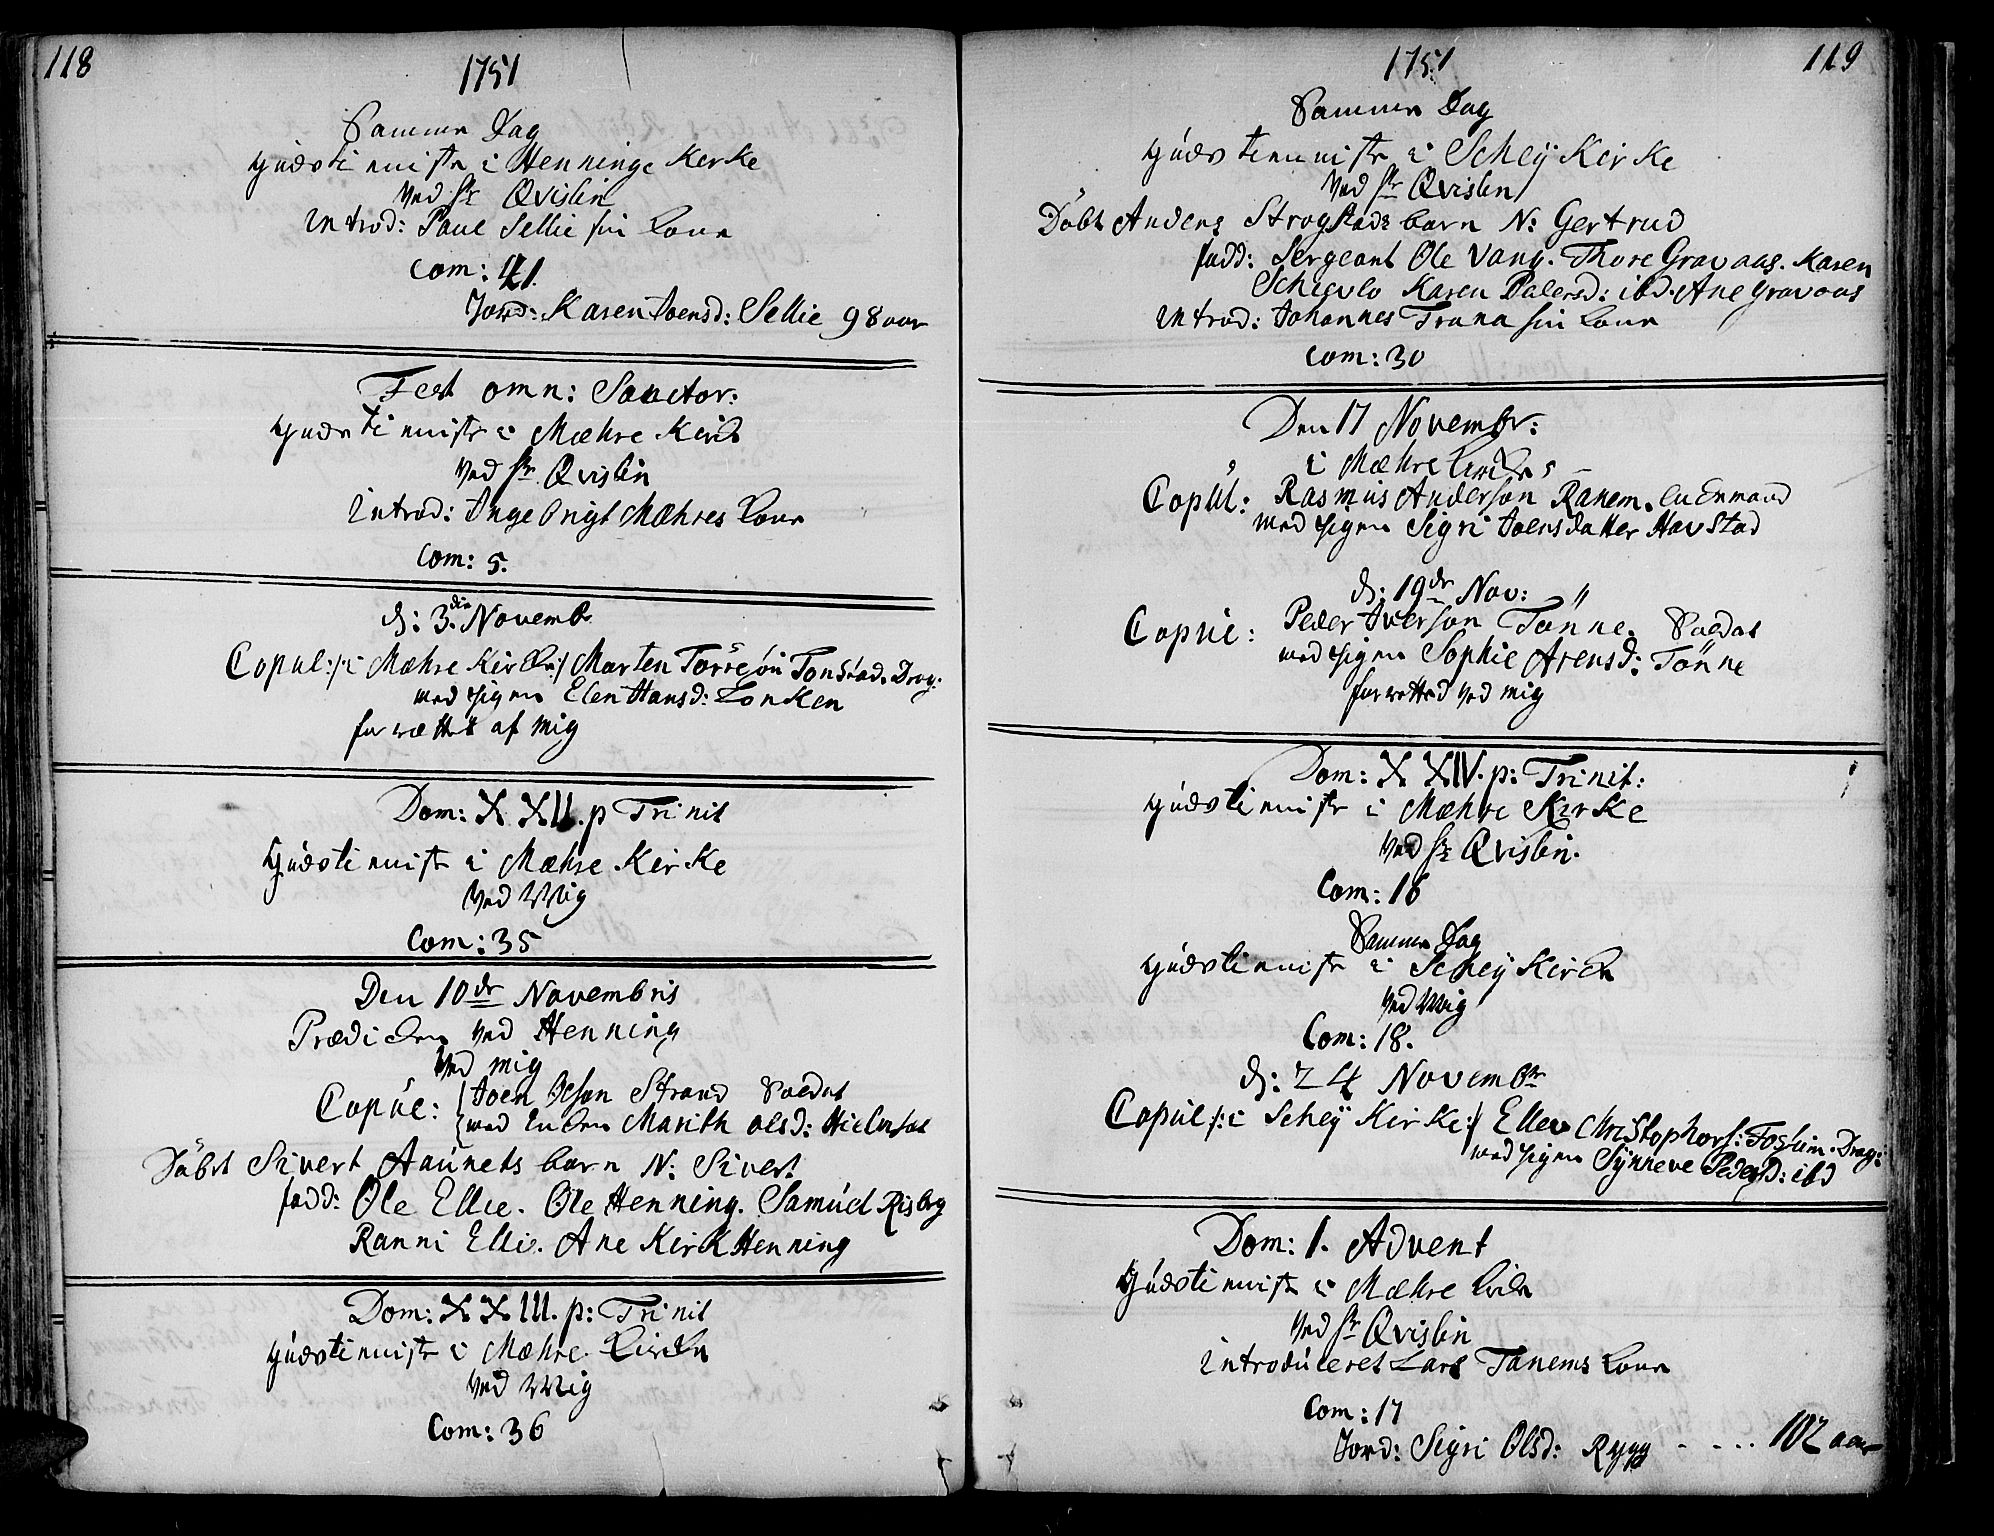 118
1751
Samme Dag
Gudstieniste i Henninge Kirke
Ved Hr Qvislin
Introd: Paul Sellie sin Kone
Com: 41.
Jord: Karen Joensd: Sellie 98 aar
Fest omn: Sanctor:
Gudstieniste i Mæhre Kirke
Ved Hr. Qvislin
Introd: Ingebrigt Mæhres Kone
Com: 5.
d: 3die Novemb
Copul: /: i Mæhre Kirke :/ Morten Torresøn Tonstad. Drag:
med pigen Elen Hansd: Lonken
forrettet af mig
Dom: XXII. p Trinit
Gudstieniste i Mæhre Kirke
Ved Mig
Com: 35
Den 10de Novembris
Prædiken ved Henning
Ved mig
Copul: Joen Olsøn Strand Soldat
med Enken Marith Olsd:
Døbt Sivert Aunets barn N: Sivert
fadd: Ole Ellie. Ole Henning. Samuel Risbrg
Ranni Elli. Ane Kirk Henning
Dom: XXIII. p: Trinit
Gudstieniste i Mæhre Kirke
Ved Mig
Com: 36
1751
119
Samme Dag
Gudstieniste i Schey Kirke
Ved Hr Qvislin
Døbt Anders Strogstads barn N: Gertrud
fadd: Sergeant Ole Vang. Thore Gravaas. Karen
Karen Ibd. Ane Gravaas
Introd: Johannes Trana sin Kone
Com: 30
Den 17 Novembr:
i Mæhre Kirke
Copul: Rasmus Andersøn Ranem. Enkemand
med pigen Sigri Joensdatter Havstad
d: 19de Nov:
Copul: Peder Iversøn Tønne. Soldat
med pigen Sophie Arensd: Tønne
forrettet ved mig
Dom: XXIV. p: Trinit:
Gudstieniste i Mæhre Kirke
Ved Hr Qvislin.
Com: 16
Samme Dag
Gudstieniste i Schey Kirke
Ved Mig
Com: 18.
d: 24 Novembr
Copul /: i Schey Kirke :/ Ellev Christophers: Foshim. Drag:
med pigen Synneve Pedersd: ibd
Dom: 1. Advent
Gudstieniste i Mæhre Kirke
Ved Hr Qvislin
Introduceret Lars Tanems Kone
Com: 17
Jord: Sigri Olsd: Rygg - - ... 102 aar